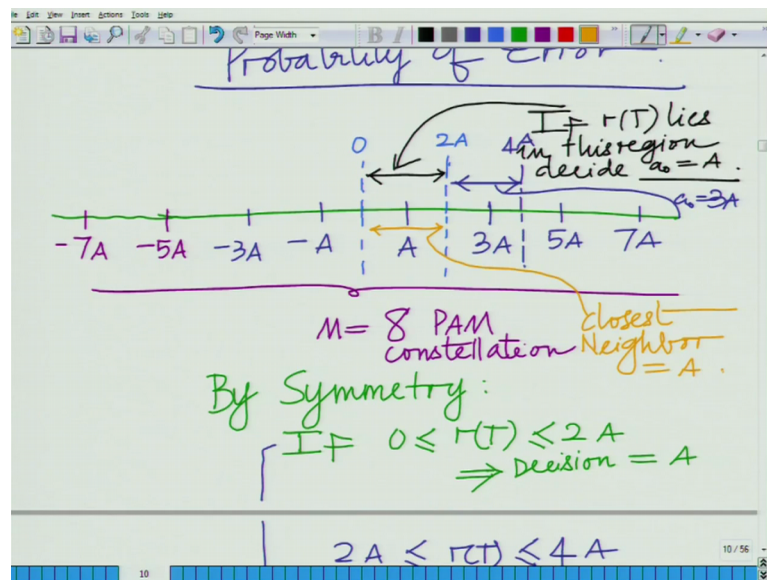 File Edit View Insert Actions Tools Help
Page Width
Probability of Error.
If r(T) lies
in this region
decide a₀ = A.
0 2A 4A
a₀ = 3A
-7A -5A -3A -A A 3A 5A 7A
M = 8 PAM
constellation
closest
Neighbor
= A.
By Symmetry:
IF 0 ≤ r(T) ≤ 2A
⇒ Decision = A
2A ≤ r(T) ≤ 4A
10 / 56
10